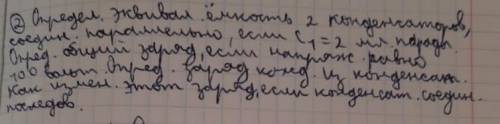 ② Определ. эквивал. ёмкость 2 конденсаторов,
соедин. параллельно, если С₁=2 мл. фарады.
Опред. общий заряд, если напряж. равно
100 вольт. Опред. заряд кажд. из конденсат.
Как измен. этот заряд, если конденсат. соедин.
последов.